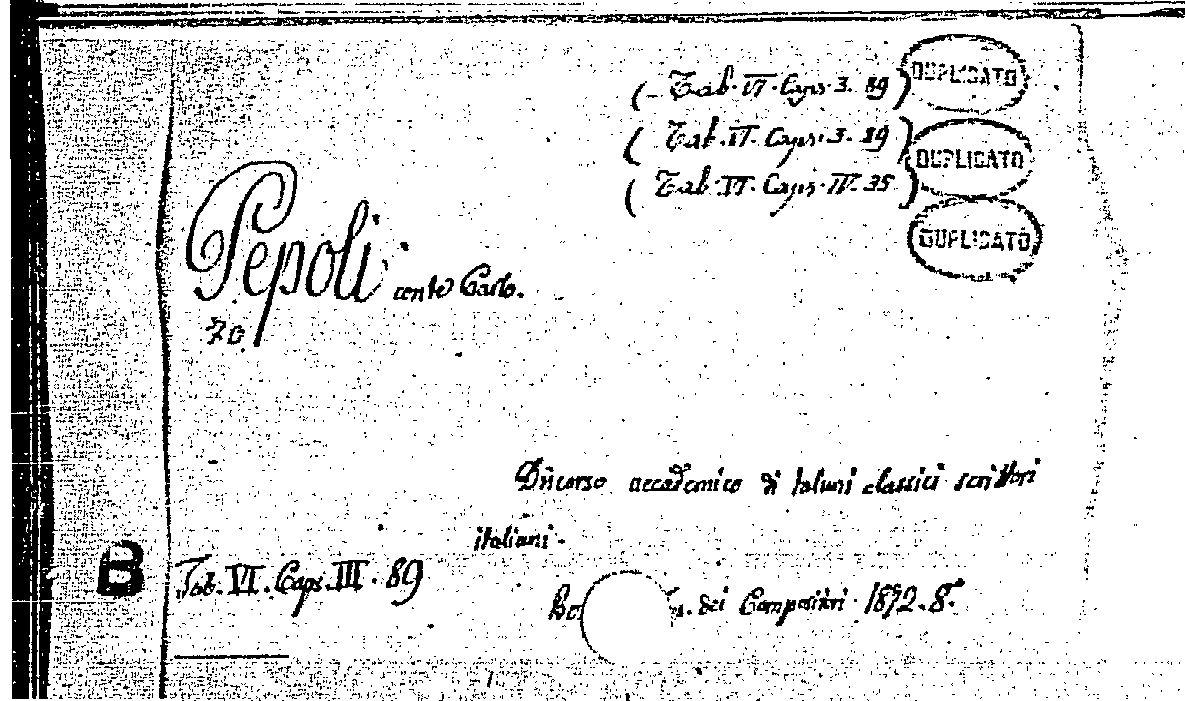 ( Tab. VI. Caps. 3. 89 ) DUPLICATO
( Tab. VI. Caps. 3. 89 ) DUPLICATO
( Tab. VI. Caps. IV. 35 ) DUPLICATO
Pepoli conte Carlo.
70.
Discorso accademico di taluni classici scrittori
italiani.
B
Tab. VI. Caps. III. 89
Bo. dei Compositori. 1872. 8.°